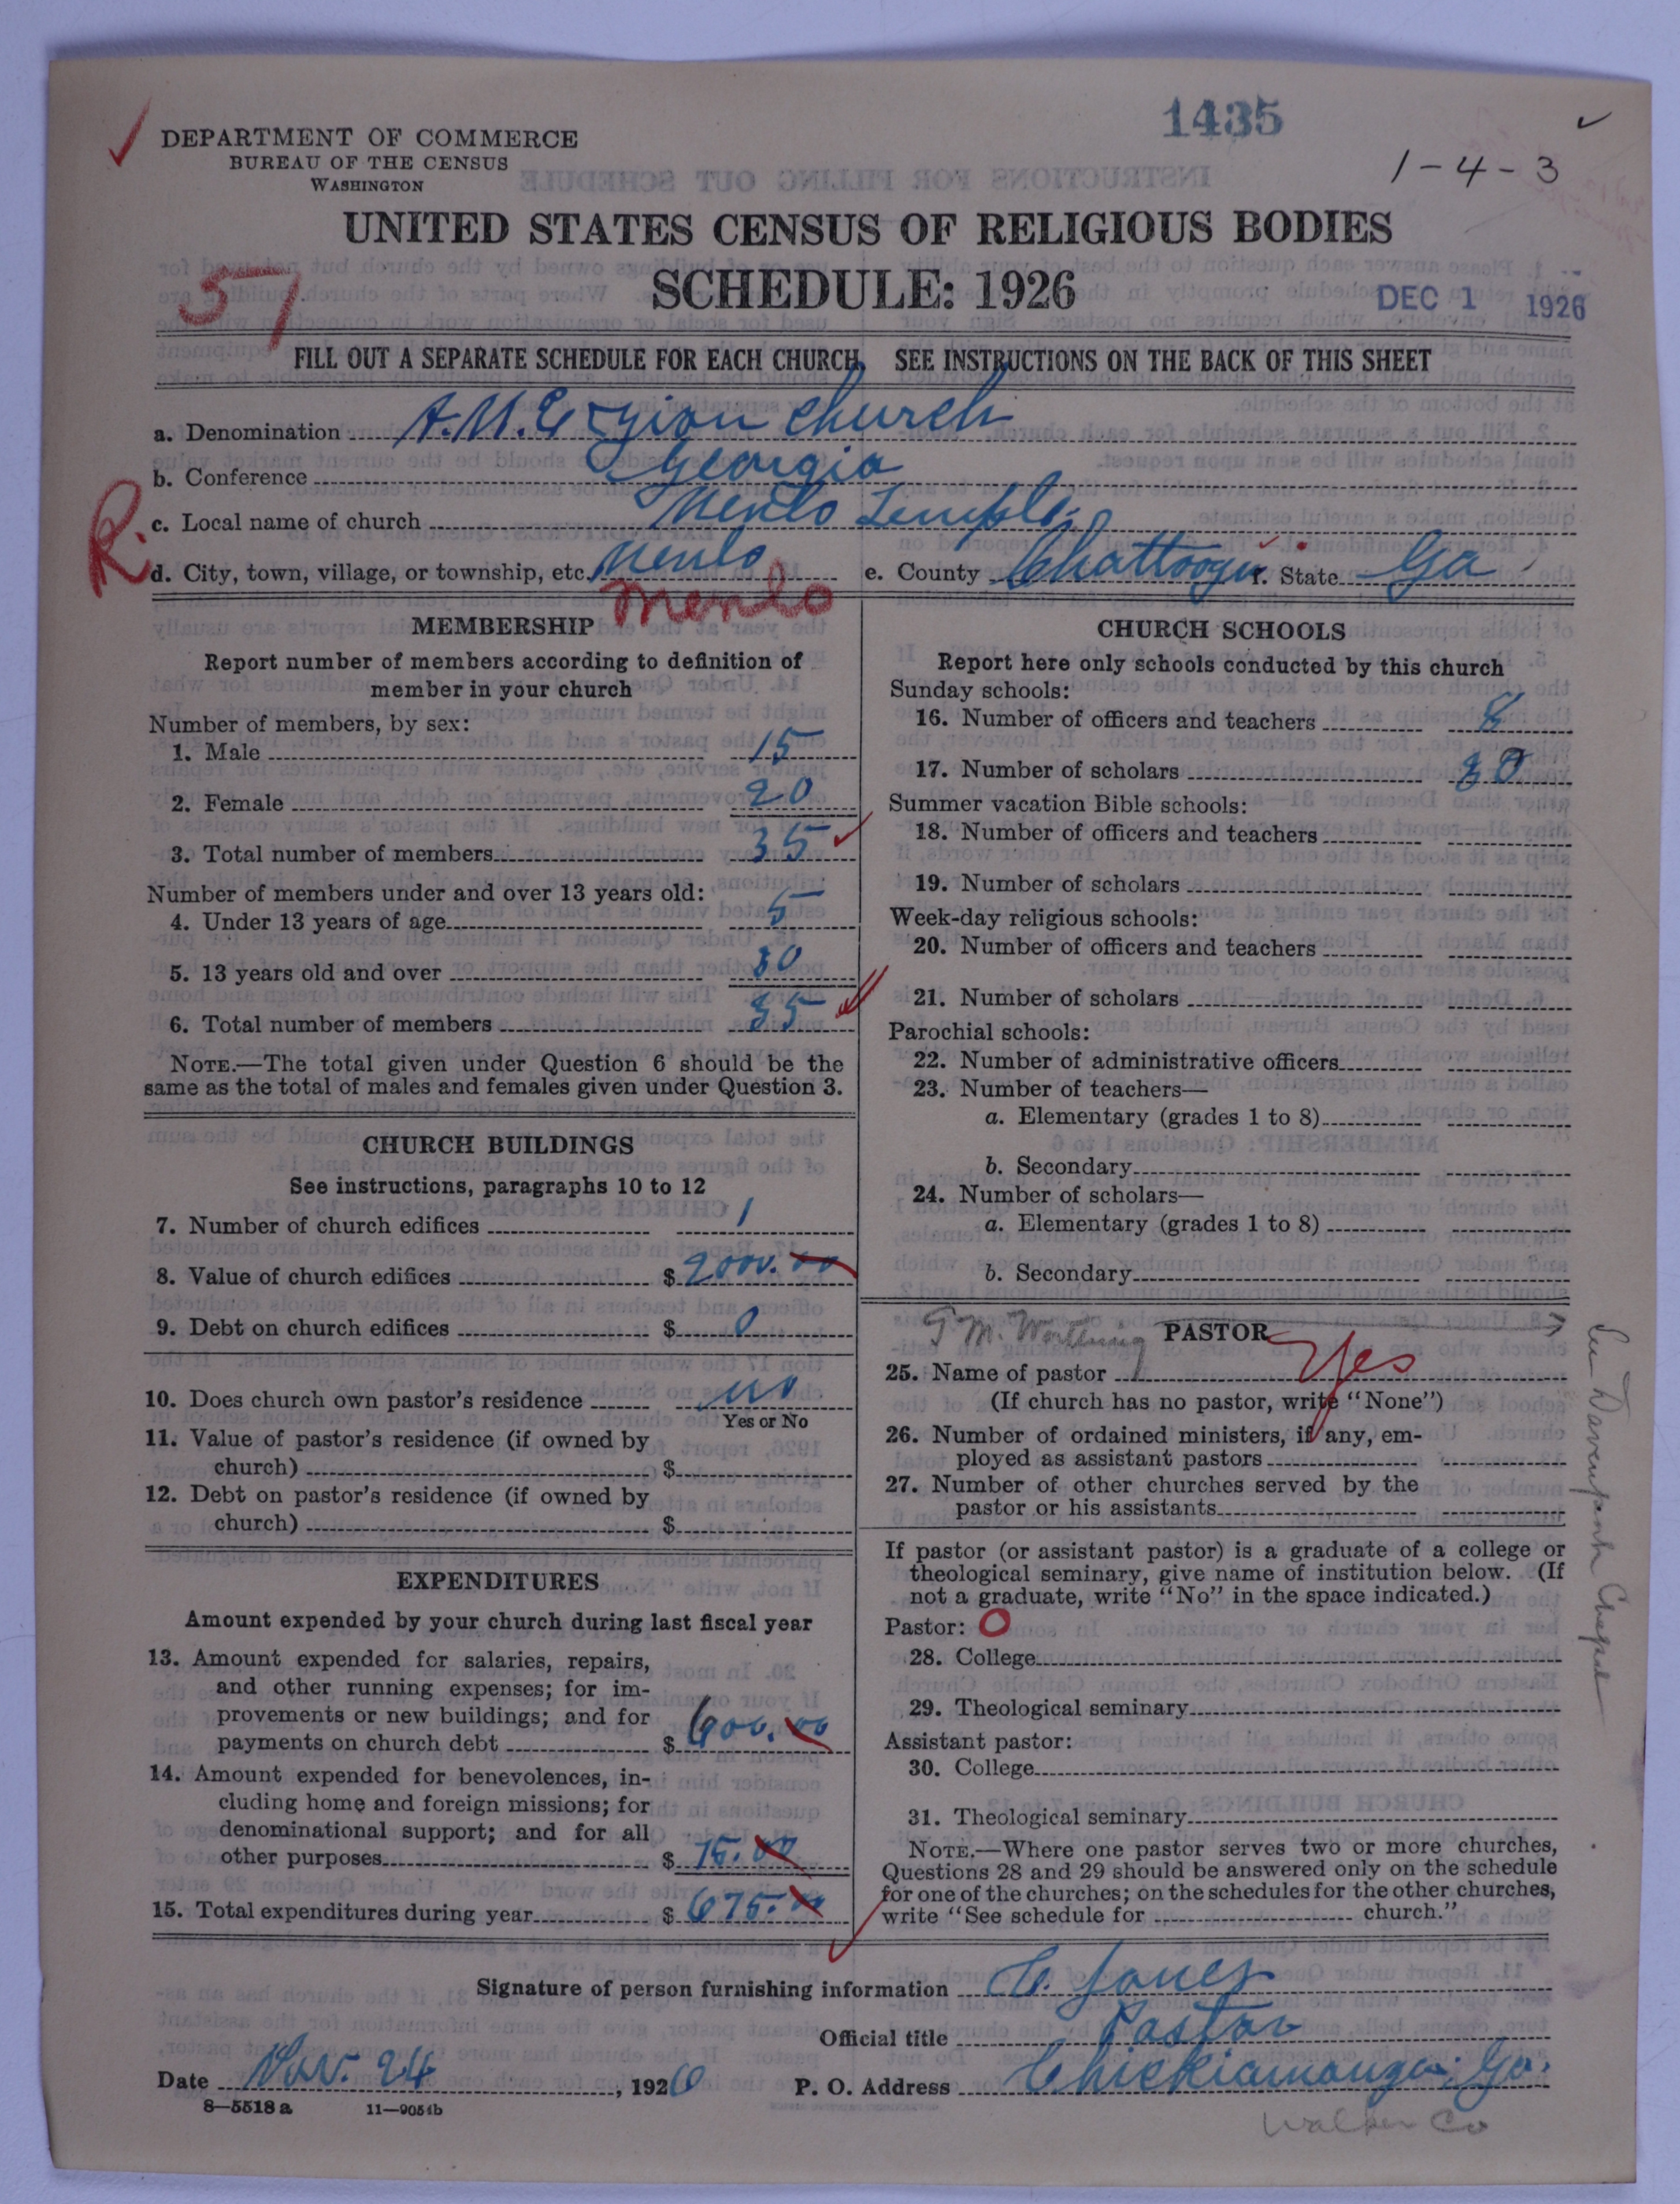 1435
1-4-3
DEPARTMENT OF COMMERCE
BUREAU OF THE CENSUS
WASHINGTON
UNITED STATES CENSUS OF RELIGIOUS BODIES
SCHEDULE: 1926
57
DEC 1 1926
FILL OUT A SEPARATE SCHEDULE FOR EACH CHURCH. SEE INSTRUCTIONS ON THE BACK OF THIS SHEET
a. Denomination A.M.E Zion Church
b. Conference Georgia
R.
c. Local name of church Menlo Temple
d. City, town, village, or township, etc. Menlo e. County Chattooga f. State Ga
Menlo
MEMBERSHIP
Report number of members according to definition of
member in your church
Number of members, by sex:
1. Male 15
2. Female 20
3. Total number of members 35
Number of members under and over 13 years old:
4. Under 13 years of age 5
5. 13 years old and over 30
6. Total number of members 35
NOTE.—The total given under Question 6 should be the
same as the total of males and females given under Question 3.
CHURCH BUILDINGS
See instructions, paragraphs 10 to 12
7. Number of church edifices 1
8. Value of church edifices $ 2000.00
9. Debt on church edifices $ 0
10. Does church own pastor's residence no
Yes or No
11. Value of pastor's residence (if owned by
church) $
12. Debt on pastor's residence (if owned by
church) $
EXPENDITURES
Amount expended by your church during last fiscal year
13. Amount expended for salaries, repairs,
and other running expenses; for im-
provements or new buildings; and for
payments on church debt $ 600.00
14. Amount expended for benevolences, in-
cluding home and foreign missions; for
denominational support; and for all
other purposes $ 75.00
15. Total expenditures during year $ 675.00
CHURCH SCHOOLS
Report here only schools conducted by this church
Sunday schools:
16. Number of officers and teachers 8
17. Number of scholars 30
Summer vacation Bible schools:
18. Number of officers and teachers
19. Number of scholars
Week-day religious schools:
20. Number of officers and teachers
21. Number of scholars
Parochial schools:
22. Number of administrative officers
23. Number of teachers—
a. Elementary (grades 1 to 8)
b. Secondary
24. Number of scholars—
a. Elementary (grades 1 to 8)
b. Secondary
PASTOR
25. Name of pastor Yes
(If church has no pastor, write "None")
26. Number of ordained ministers, if any, em-
ployed as assistant pastors
27. Number of other churches served by the
pastor or his assistants
If pastor (or assistant pastor) is a graduate of a college or
theological seminary, give name of institution below. (If
not a graduate, write "No" in the space indicated.)
Pastor: O
28. College
29. Theological seminary
Assistant pastor:
30. College
31. Theological seminary
NOTE.—Where one pastor serves two or more churches,
Questions 28 and 29 should be answered only on the schedule
for one of the churches; on the schedules for the other churches,
write "See schedule for church."
Chapel
Signature of person furnishing information C. Jones
Official title Pastor
Date Nov. 24, 1926 P. O. Address Chickiamauga, Ga.
8—5518 a 11—9051b
Walker Co